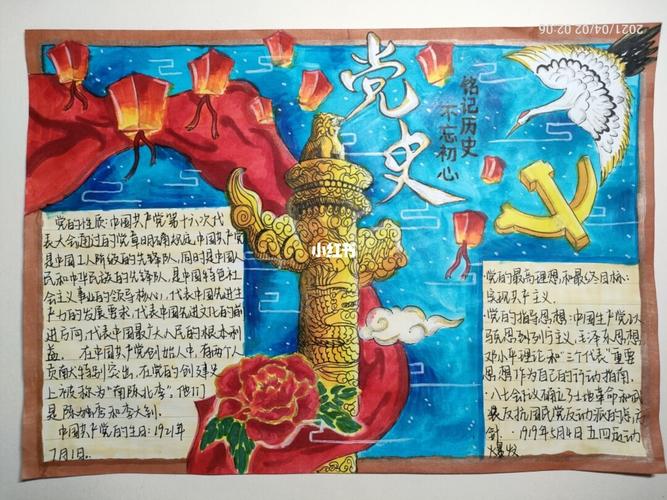 2021/04/02 02:06
党史
铭记历史
不忘初心
小红书
党的性质:中国共产党第十六次代
表大会通过的党章明确规定,中国共产党
是中国工人阶级的先锋队,同时是中国人
民和中华民族的先锋队,是中国特色社
会主义事业的领导核心,代表中国先进生
产力的发展要求,代表中国先进文化的前
进方向,代表中国最广大人民的根本利
益。 在中国共产党创始人中,有两个人
贡献特别突出,在党的创建史
上被称为“南陈北李”,他们
是陈独秀和李大钊。
中国共产党的生日:1921年
7月1日.
党的最高理想和最终目标:
实现共产主义.
·党的指导思想:中国共产党以马
列主义、毛泽东思想,
邓小平理论和“三个代表”重要
思想作为自己的行动指南.
·八七会议确定了土地革命和武
装反抗国民党反动派的总方
针. ·1919年5月4日五四运动
爆发